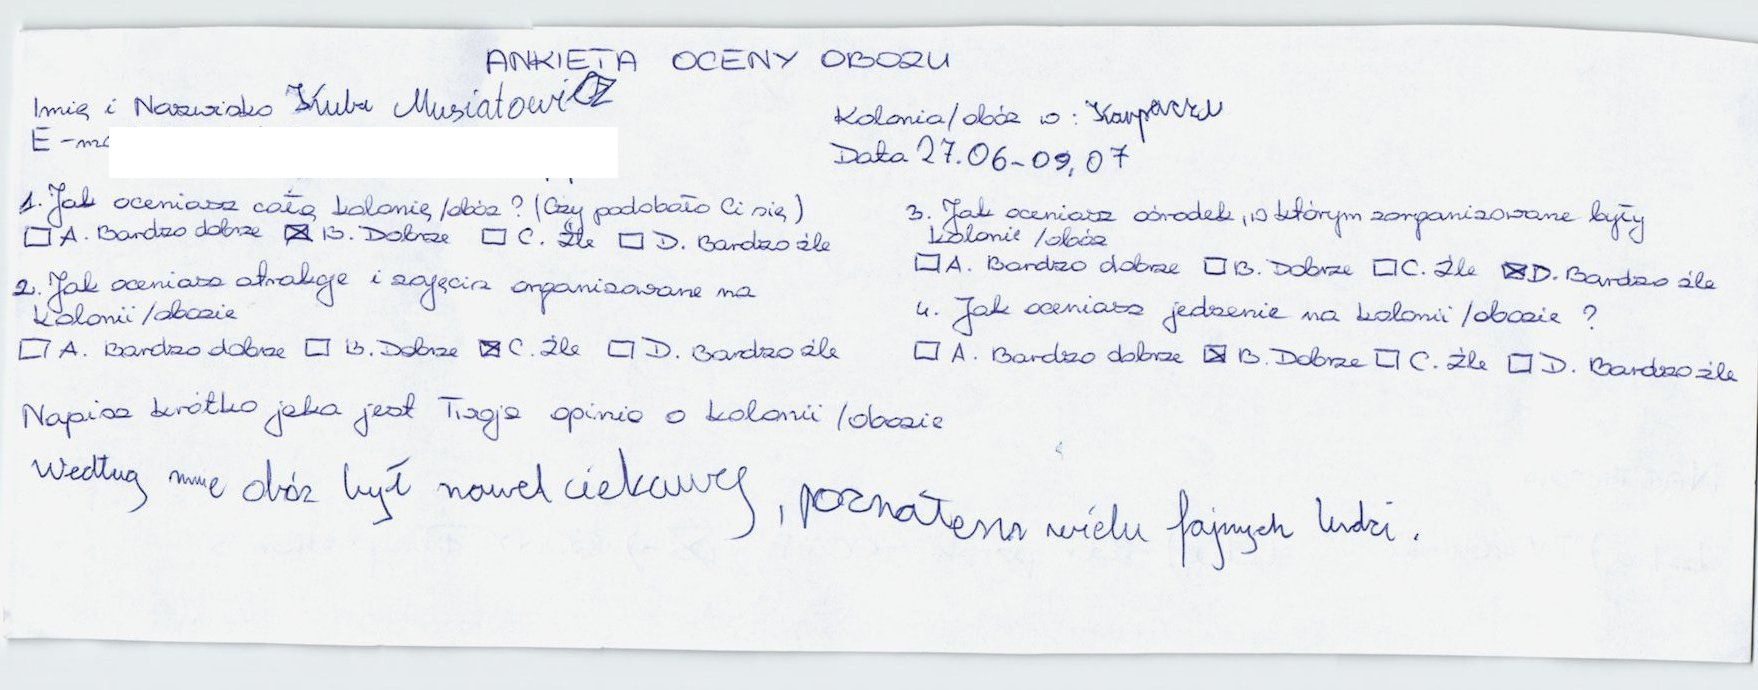 ANKIETA OCENY OBOZU
Imię i Nazwisko Kuba Musiałowicz
E-ma
Kolonia/obóz w: Karpaczu
Data 27.06-09,07
1. Jak oceniasz całą kolonię/obóz? (Czy podobało Ci się)
A. Bardzo dobrze B. Dobrze C. Źle D. Bardzo źle
2. Jak oceniasz atrakcje i zajęcia organizowane na
kolonii/obozie
A. Bardzo dobrze B. Dobrze C. Źle D. Bardzo źle
3. Jak oceniasz ośrodek, w którym zorganizowane były
kolonie/obóz
A. Bardzo dobrze B. Dobrze C. Źle D. Bardzo źle
4. Jak oceniasz jedzenie na kolonii/obozie?
A. Bardzo dobrze B. Dobrze C. Źle D. Bardzo źle
Napisz krótko jaka jest Twoja opinia o kolonii/obozie
Według mnie obóz był nawet ciekawy, poznałem wielu fajnych ludzi.